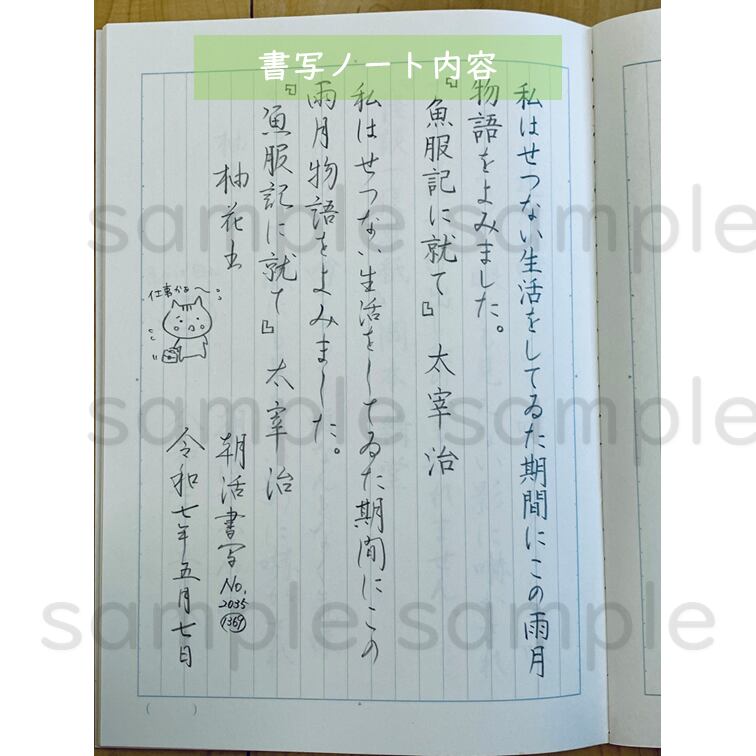 書写ノート内容
私はせつない生活をしてゐた期間にこの雨月
物語をよみました。
『魚服記に就て』 太宰 治
私はせつない生活をしてゐた期間にこの
雨月物語をよみました。
『魚服記に就て』 太宰 治
柚花
仕事かぁ〜
朝活書写 No. 2035 1369
令和七年五月七日
sample sample
sample sample
sample sample